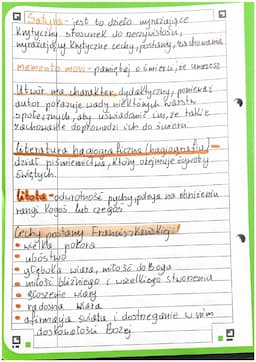 Satyra - jest to dzieło wyrażające
krytyczny stosunek do rzeczywistości,
wyrażający krytyczne cechy, postawy, zachowania
memento mori - pamiętaj o śmierci, że umrzesz
Utwór ma charakter dydaktyczny, ponieważ
autor pokazuje wady niektórych warstw
społecznych, aby uświadomić im, że takie
zachowanie doprowadzi ich do
literatura hagiograficzna (hagiografia) -
dział piśmiennictwa, który obejmuje żywoty
świętych.
litota - odwrotność pychy, polega na obniżeniu
rangi kogoś lub czegoś
Cechy postawy Franciszkowskiej
wielka pokora
ubóstwo
głęboka wiara, miłość do Boga
miłość bliźniego i wszelkiego stworzenia
głoszenie wiary
radosna wiara
afirmacja świata i dostrzeganie w nim
doskonałości Bożej